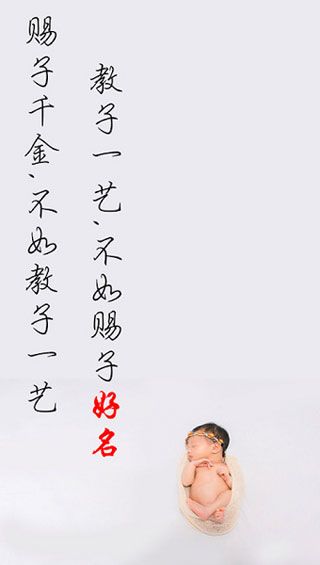 赐子千金、不如教子一艺
教子一艺、不如赐子好名